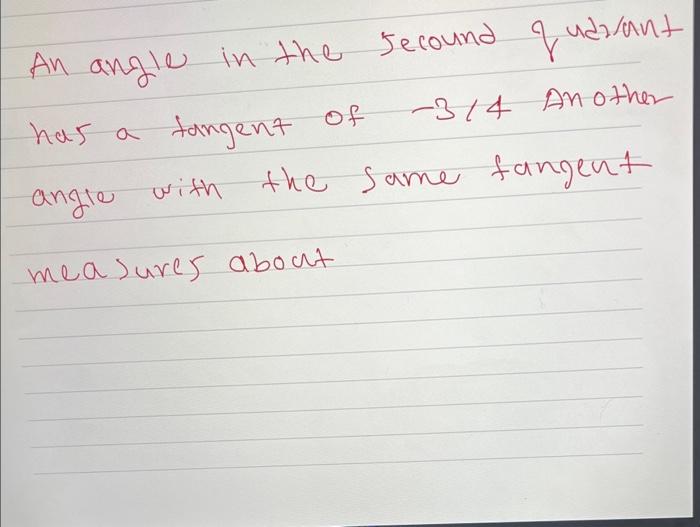 An angle in the secound qudrant
has a tangent of -3/4 Another
angle with the same tangent
measures about